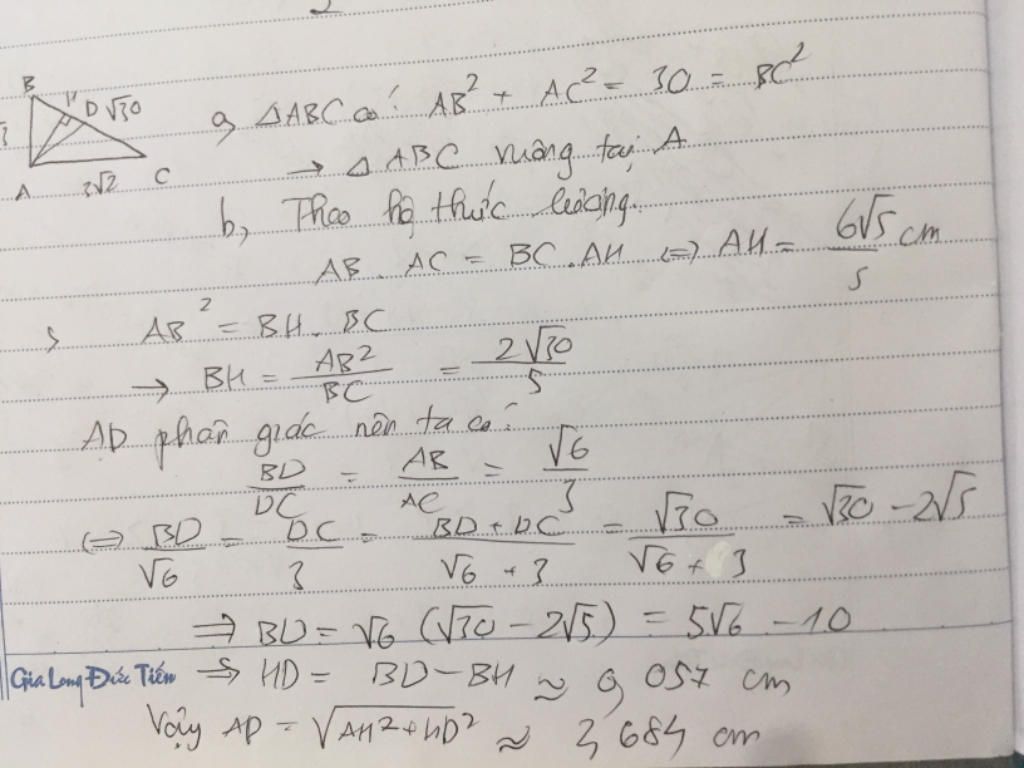 B
H
D √30
A
3√2
C
a, △ABC có: AB² + AC² = 30 = BC²
→ △ABC vuông tại A
b, Theo hệ thức lượng.
AB . AC = BC . AH ⇔ AH = 6√5/5 cm
AB² = BH . BC
→ BH = AB²/BC = 2√30/5
AD phân giác nên ta có:
BD/DC = AB/AC = √6/3
⇔ BD/√6 = DC/3 = BD + DC/√6 + 3 = √30/√6 + 3 = √30 - 2√5
⇒ BD = √6 (√30 - 2√5) = 5√6 - 10
Gia Long Đức Tiến
⇒ HD = BD - BH ≈ 0,057 cm
Vậy AD = √AH² + HD² ≈ 2,684 cm